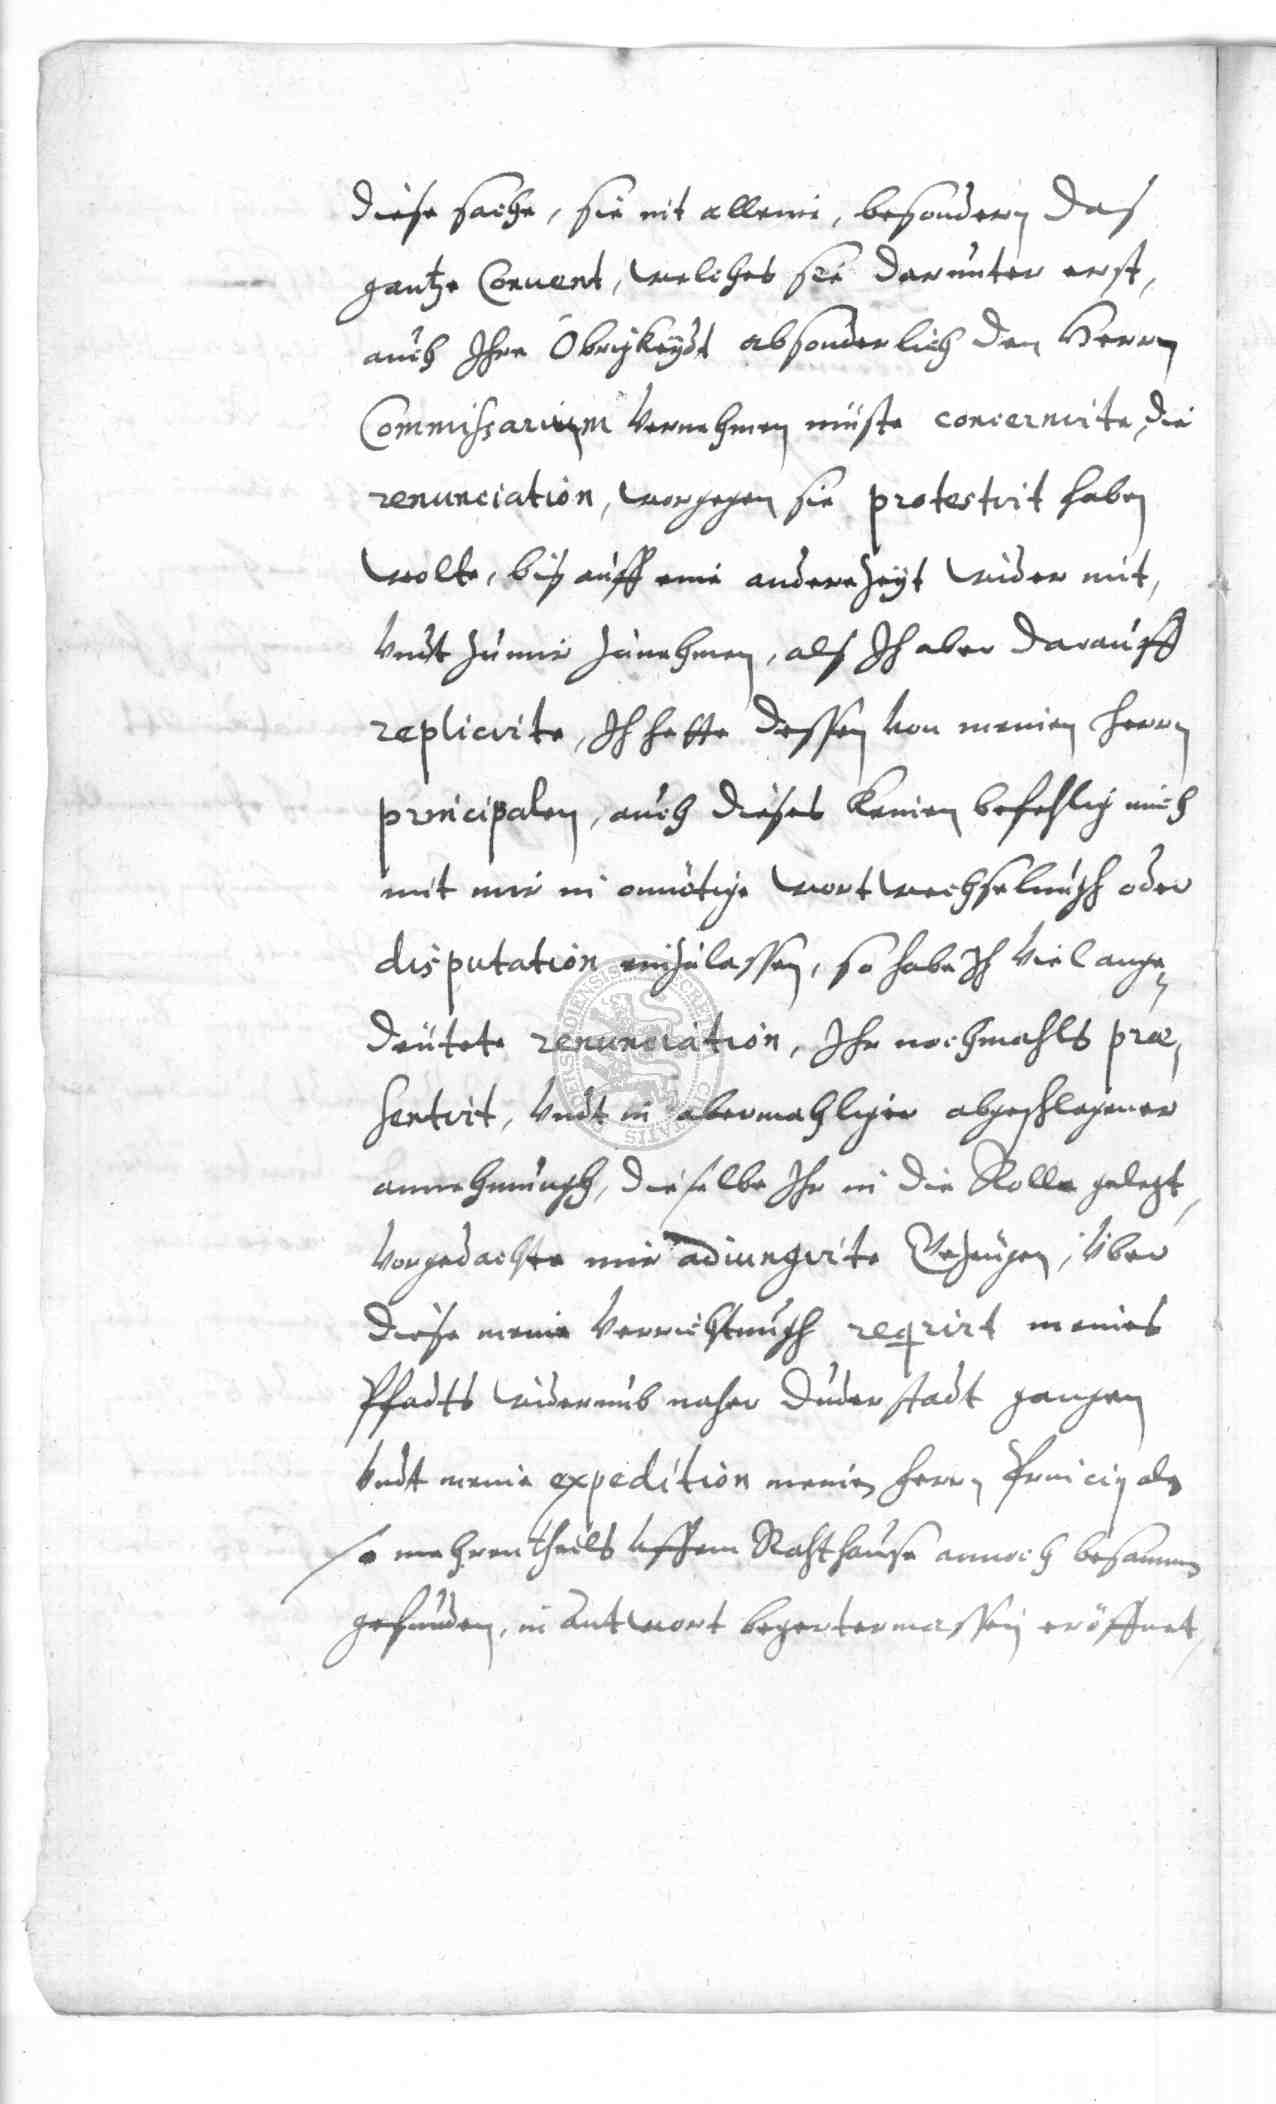 diese sache, sie nit allein, besondern das
gantze Convent, welches sie darunter erst,
auch Ihre Obrigkeydt absonderlich den Herrn
Commissarium vernehmen müste concernirte, die
renunciation, worgegen sie protestirt haben
wolte, biß auff eine andere Zeyt wider mit,
undt zu mir zunehmen, alß Ich aber darauff
replicirte, Ich hette dessen von meinen Herrn
principalen, auch dieses keinen befehlig mich
mit mir in onnötige wortwechselungh oder
disputation einzulassen, so habe Ich viel ange,
deutete renunciation, Ihr nochmahls præ,
sentirt, undt in abermahliger abgeschlagener
annehmungh, dieselbe Ihr in die Rolle gelegt,
vorgedachte mir adiungirte Gezeugen, über
diese meine verrichtungh requirirt meines
Pfadts widerumb naher Duderstadt gangen
undt meine expedition meinen Herrn Principaln
so mehrentheils uffem Rahthause annoch besammen
gefunden, in antwort begertermassen eröffnet,